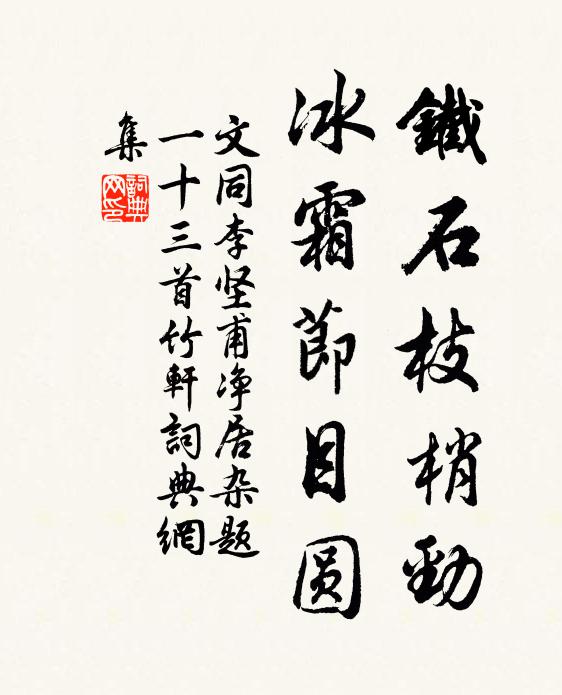 鐵石枝梢勁
冰霜節目圆
文同李坚甫净居杂题
一十三首竹軒詞典網
集
詞典
网印